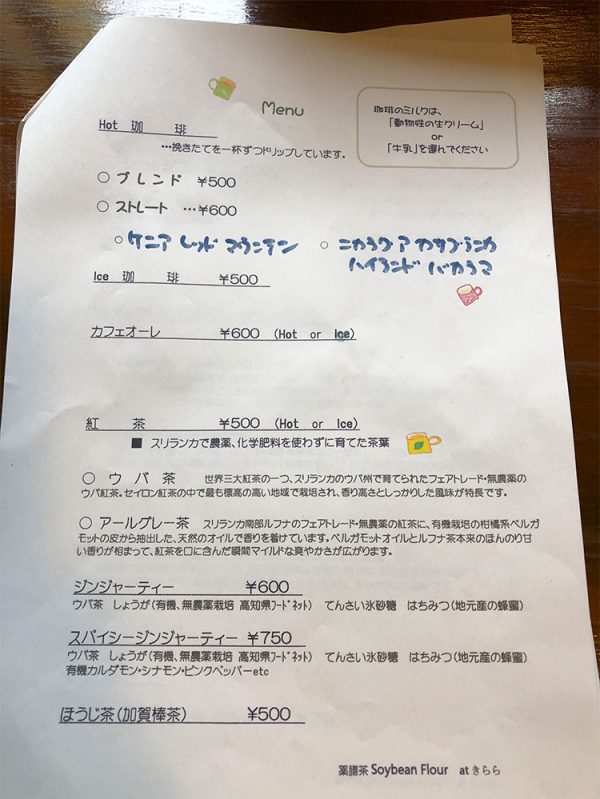 Menu
珈琲のミルクは、
「動物性の生クリーム」
or
「牛乳」を選んでください
Hot 珈 琲
…挽きたてを一杯ずつドリップしています。
○ ブレンド ¥500
○ ストレート …¥600
○ ケニア レッド マウンテン ○ ニカラグア カサブランカ
ハイランド バカラマ
Ice 珈 琲 ¥500
カフェオーレ ¥600 (Hot or Ice)
紅 茶 ¥500 (Hot or Ice)
■ スリランカで農薬、化学肥料を使わずに育てた茶葉
○ ウバ茶 世界三大紅茶の一つ、スリランカのウバ州で育てられたフェアトレード・無農薬の
ウバ紅茶。セイロン紅茶の中で最も標高の高い地域で栽培され、香り高さとしっかりした風味が特長です。
○ アールグレー茶 スリランカ南部ルフナのフェアトレード・無農薬の紅茶に、有機栽培の柑橘系ベルガ
モットの皮から抽出した、天然のオイルで香りを着けています。ベルガモットオイルとルフナ茶本来のほんのり甘
い香りが相まって、紅茶を口に含んだ瞬間マイルドな爽やかさが広がります。
ジンジャーティー ¥600
ウバ茶 しょうが(有機、無農薬栽培 高知県ﾌｰﾄﾞﾈｯﾄ) てんさい氷砂糖 はちみつ(地元産の蜂蜜)
スパイシージンジャーティー ¥750
ウバ茶 しょうが(有機、無農薬栽培 高知県ﾌｰﾄﾞﾈｯﾄ) てんさい氷砂糖 はちみつ(地元産の蜂蜜)
有機カルダモン・シナモン・ピンクペッパーetc
ほうじ茶(加賀棒茶) ¥500
薬膳茶 Soybean Flour at きらら